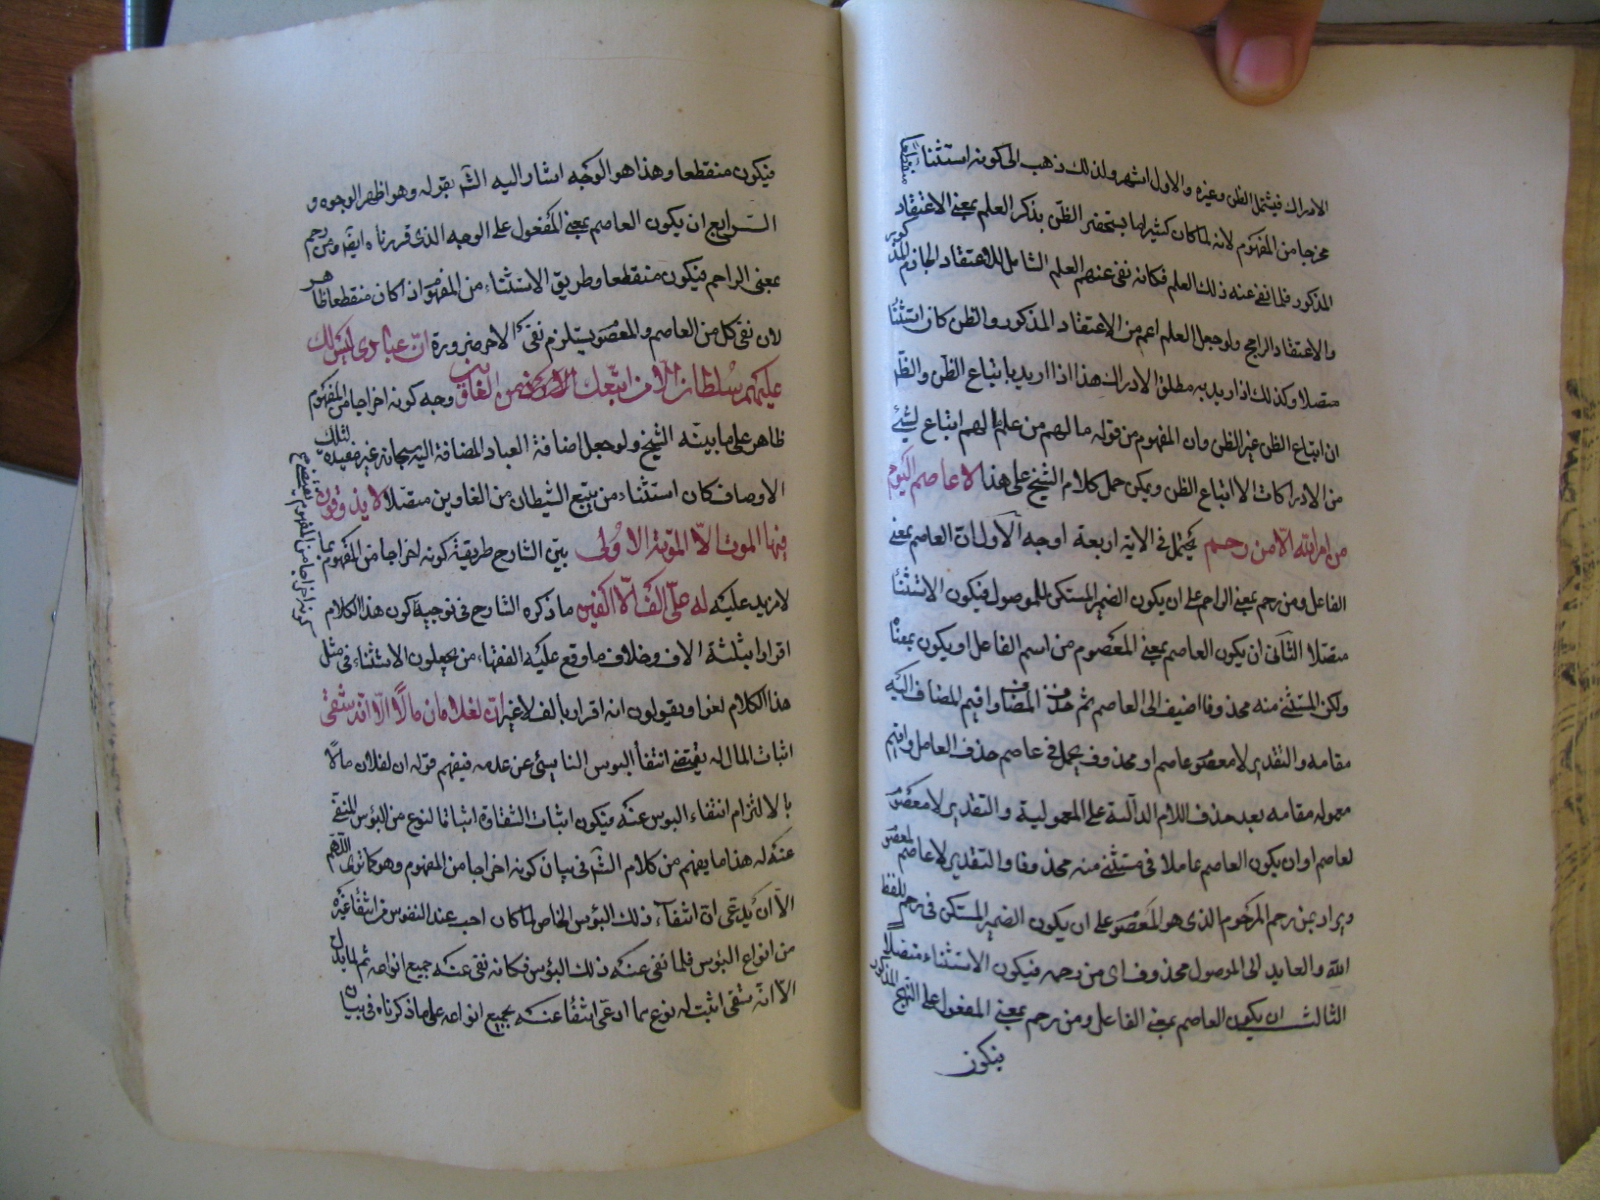 الادراك فيشمل الظن وغيره والاول اشهر ولذلك ذهب الى كونه استثناء منقطعا
مخرجا من المفهوم لانه لما كان كثيرا ما يستحضر الظن بذكر العلم بمعنى الاعتقاد
المذكور فلما نفى عنه ذلك العلم فكانه نفى عنهم العلم الشامل للاعتقاد الجازم المذكور
والاعتقاد الراجح ولو جعل العلم اعم من الاعتقاد المذكور والظن كان استثناء
متصلا وكذلك اذا اريد به مطلق الادراك هذا اذا اريد باتباع الظن والظ
ان اتباع الظن غير الظن وان المفهوم من قوله ما لهم من علم ما لهم اتباع لشئ
من الادراكات الا اتباع الظن ويمكن حمل كلام الشيخ على هذا لا عاصم اليوم
من امر الله الا من رحم يحتمل فى الاية اربعة اوجه الاول ان العاصم بمعنى
الفاعل ومن رحم بمعنى الراحم على ان يكون الضمير المستكن للموصول فيكون الاستثناء
متصلا الثانى ان يكون العاصم بمعنى المعصوم من اسم الفاعل او يكون بمعناه
ولكن المستثنى منه محذوفا اضيف الى العاصم ثم حذف المضاف واقيم المضاف اليه
مقامه والتقدير لا معصوم عاصم او محذوف يعمل فى عاصم حذف العامل واقيم
معموله مقامه بعد حذف اللام الدالة على المعمولية والتقدير لا معصوم
لعاصم او ان يكون العاصم عاملا فى مستثنى منه محذوفا والتقدير لا عاصم لمعصوم
ويراد بمن رحم المرحوم الذى هو المعصوم على ان يكون الضمير المستكن فى رحم للفظ
الله والعايد الى الموصول محذوف اى من رحمه فيكون الاستثناء متصلا
الثالث ان يكون العاصم بمعنى الفاعل ومن رحم بمعنى المفعول على النهج المذكور
فيكون
فيكون منقطعا وهذا هو الوجه اشار اليه الشم بقوله وهو اظهر الوجوه و
الرابع ان يكون العاصم بمعنى المفعول على الوجه الذى قررناه ايضا ومن رحم
بمعنى الراحم فيكون منقطعا وطريق الاستثناء من المفهوم اذا كان منقطعا ظاهر
لان نفى كل من العاصم والمعصوم يستلزم نفى الاخر ضرورة ان عبادى ليس لك
عليهم سلطان الا من اتبعك من الغاوين وجه كونه اخراجا من المفهوم
ظاهر على ما بينه الشيخ ولو جعل اضافة العباد المضافة اليه سبحانه غير مفيدة لتلك
الاوصاف كان استثناء من يتبع الشيطان من الغاوين متصلا لا يذوقون
فيها الموت الا الموتة الاولى بين الشارح طريقة كونه اخراجا من المفهوم بما
لا مزيد عليه له على الف الا الفين ما ذكره الشارح فى توجيه كون هذا الكلام
اقرارا بثلثة الاف وخلاف ما وقع عليه الفقهاء من يجعلون الاستثناء فى مثل
هذا الكلام لغوا ويقولون انه اقرار بالف لا غير ان لفلان مالا الا انه شقى
اثبات المال له يقتضى انتفاء البوس الناشئ عن عدمه فيفهم قوله ان لفلان مالا
بالالتزام انتفاء البوس عنه فيكون اثبات الشقاوة اثباتا لنوع من البؤس المنفى
عنه له هذا ما يفهم من كلام الشم فى بيان كونه اخراجا من المفهوم وهو كما ترى اللهم
الا ان يدعى ان انتفاء ذلك البؤس الخاص لما كان احب عند النفوس من انتفاء غيره
من انواع البؤس فلما نفى عنه ذلك البؤس فكانه نفى عنه جميع انواعه ثم لما بدل
الا انه شقى اثبت له نوع مما ادعى انتفاء عنه بجميع انواعه على ما ذكرناه فى بيان
كونه اخراجا من المفهوم